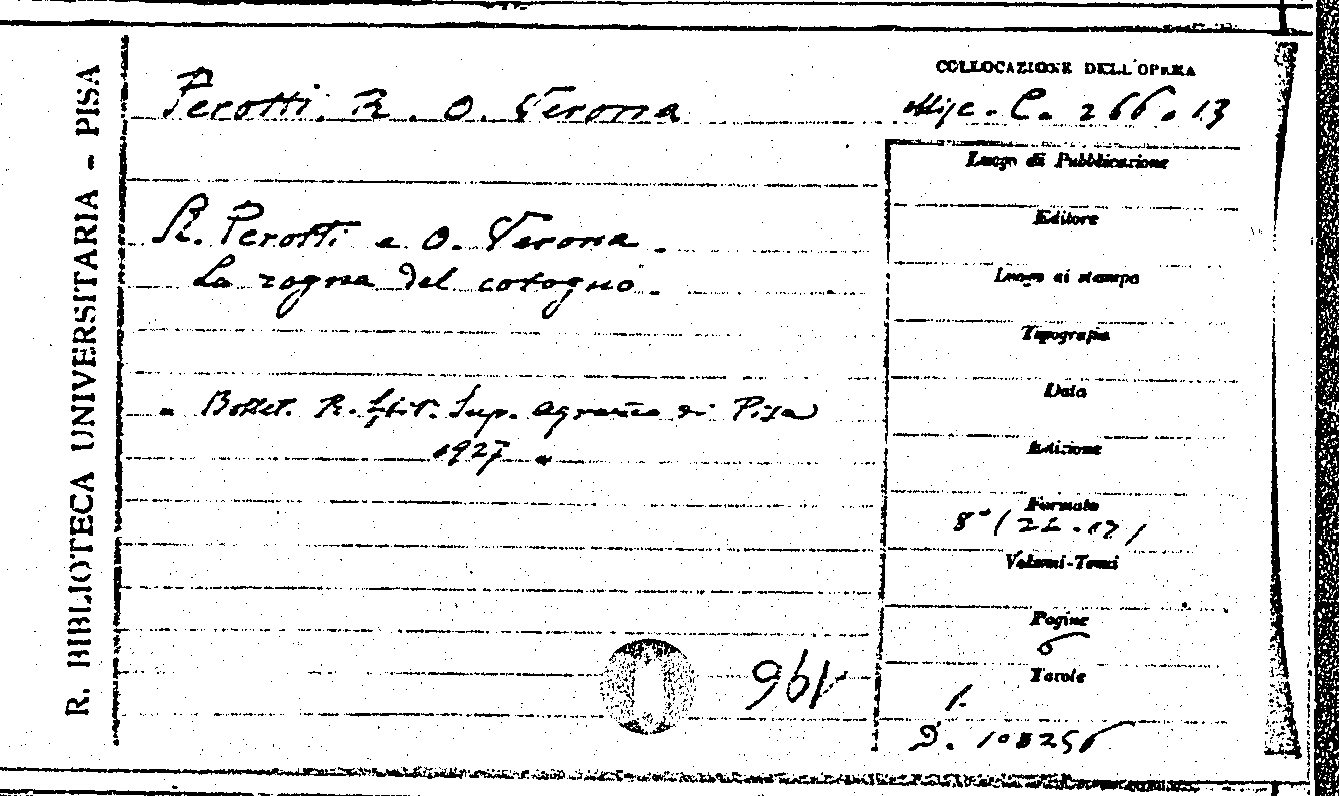 R. BIBLIOTECA UNIVERSITARIA - PISA
Perotti. R. O. Verona
R. Perotti e O. Verona.
La rogna del cotogno.
" Bollet. R. Istit. Sup. Agrario di Pisa
1927 "
196
COLLOCAZIONE DELL'OPERA
Misc. C. 266. 13
Luogo di Pubblicazione
Editore
Luogo di stampa
Tipografia
Data
Edizione
Formato
8°
Volumi-Tomi
Pagine
6
Tavole
1.
D. 108256